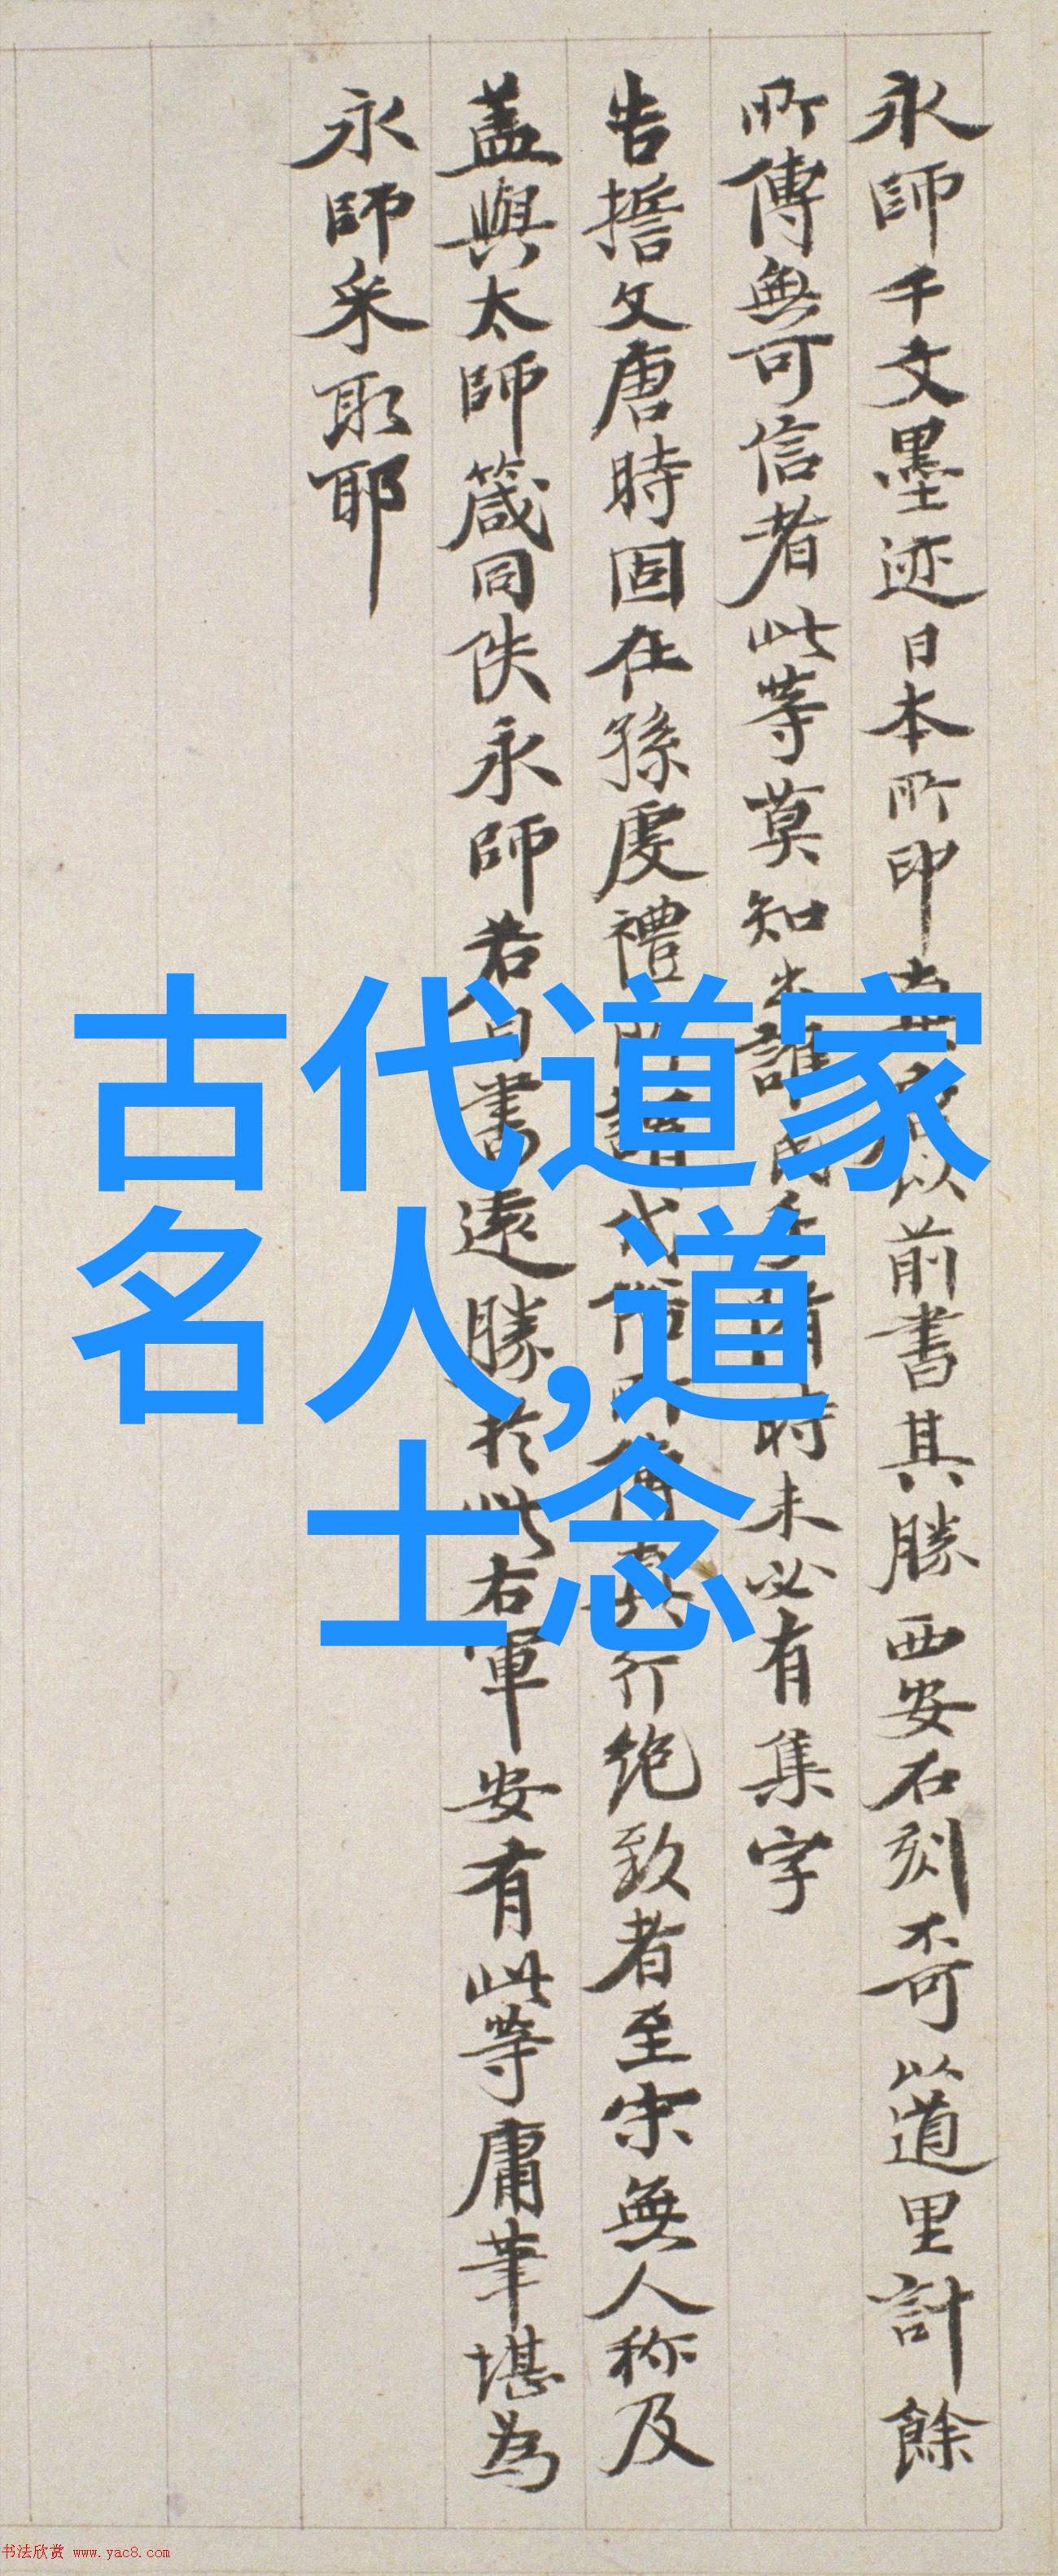 永師千文墨迹日本所印
以前書其勝西安石刻不可以道里計餘
所傳無可信者此等莫知出誰
時未必有集字
告誓文唐時固在孫虔禮
行絶致者至宋無人称及
盖與太師箴同佚永師若
書遠勝於此右軍安有此等庸筆堪為
永師采取耶
古代道家
名人,道
士念
书法欣赏 www.yac8.com